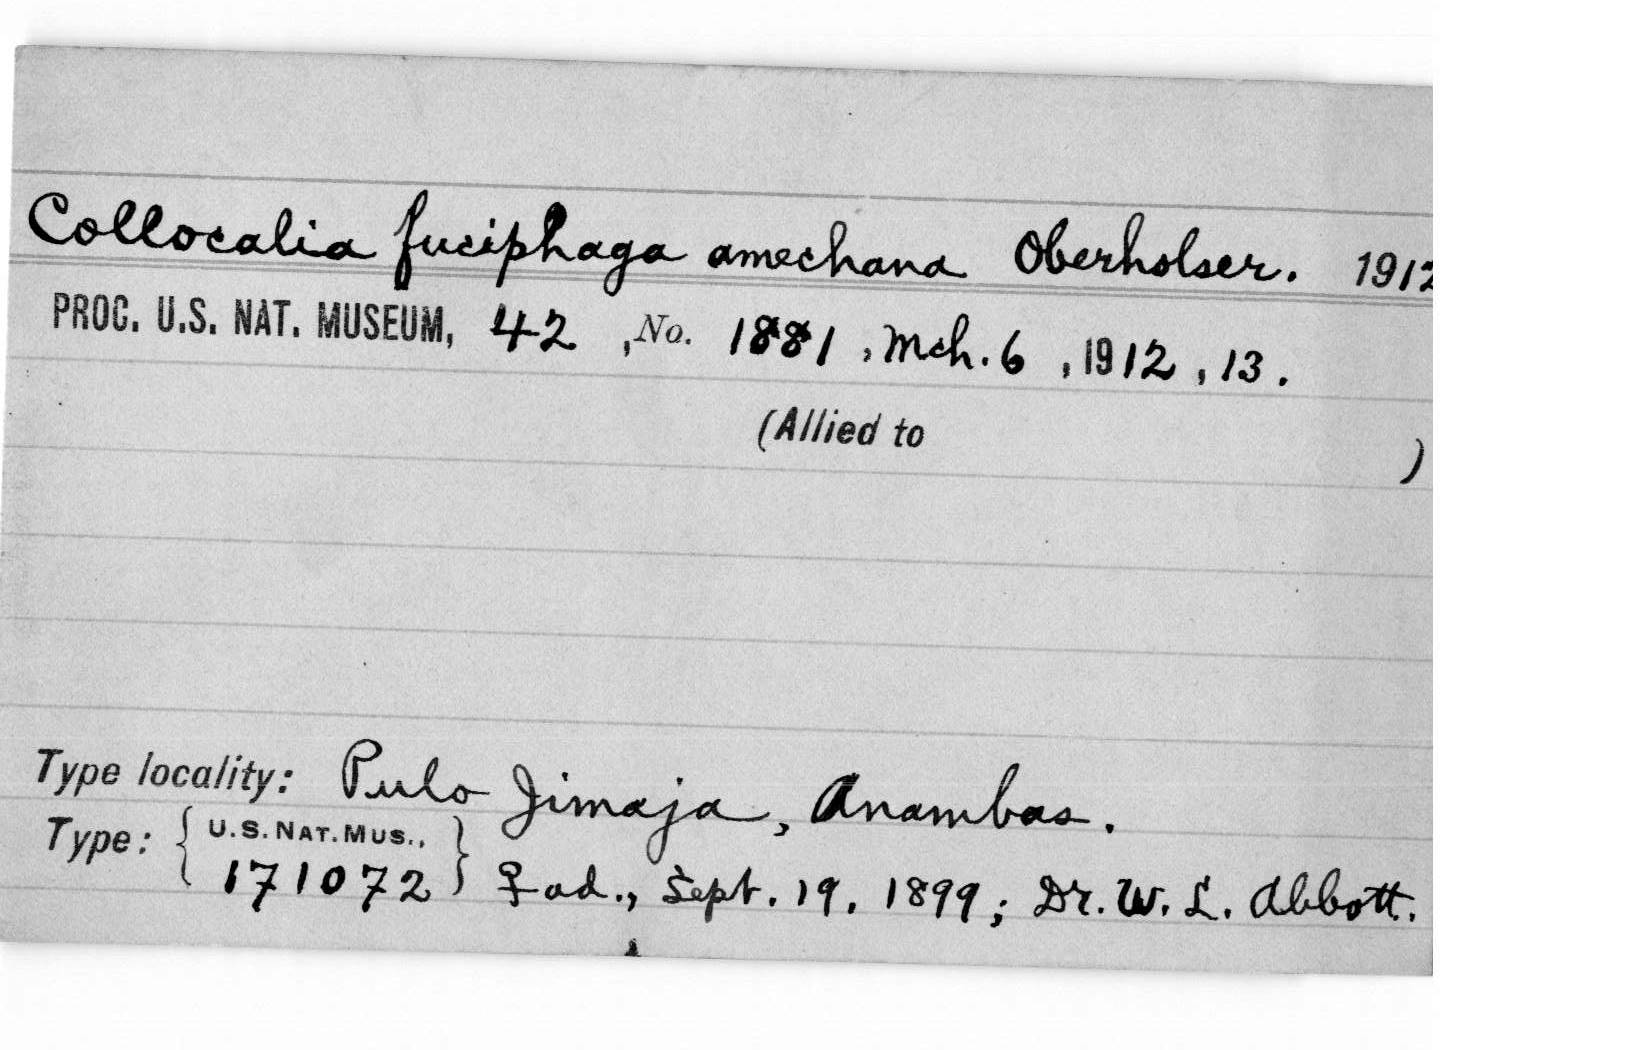 Collocalia fuciphaga amechana Oberholser. 1912
PROC. U.S. NAT. MUSEUM, 42, No. 1881, Mch. 6, 1912, 13.
(Allied to )
Type locality: Pulo Jimaja, Anambas.
Type: { U.S. NAT. MUS., 171072 } ♀ ad., Sept. 19, 1899; Dr. W. L. Abbott.